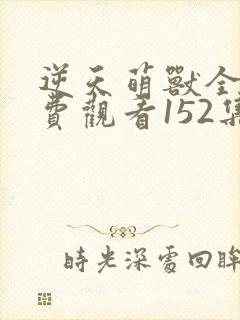 逆天萌獸全
費觀看152集
時光深處回眸